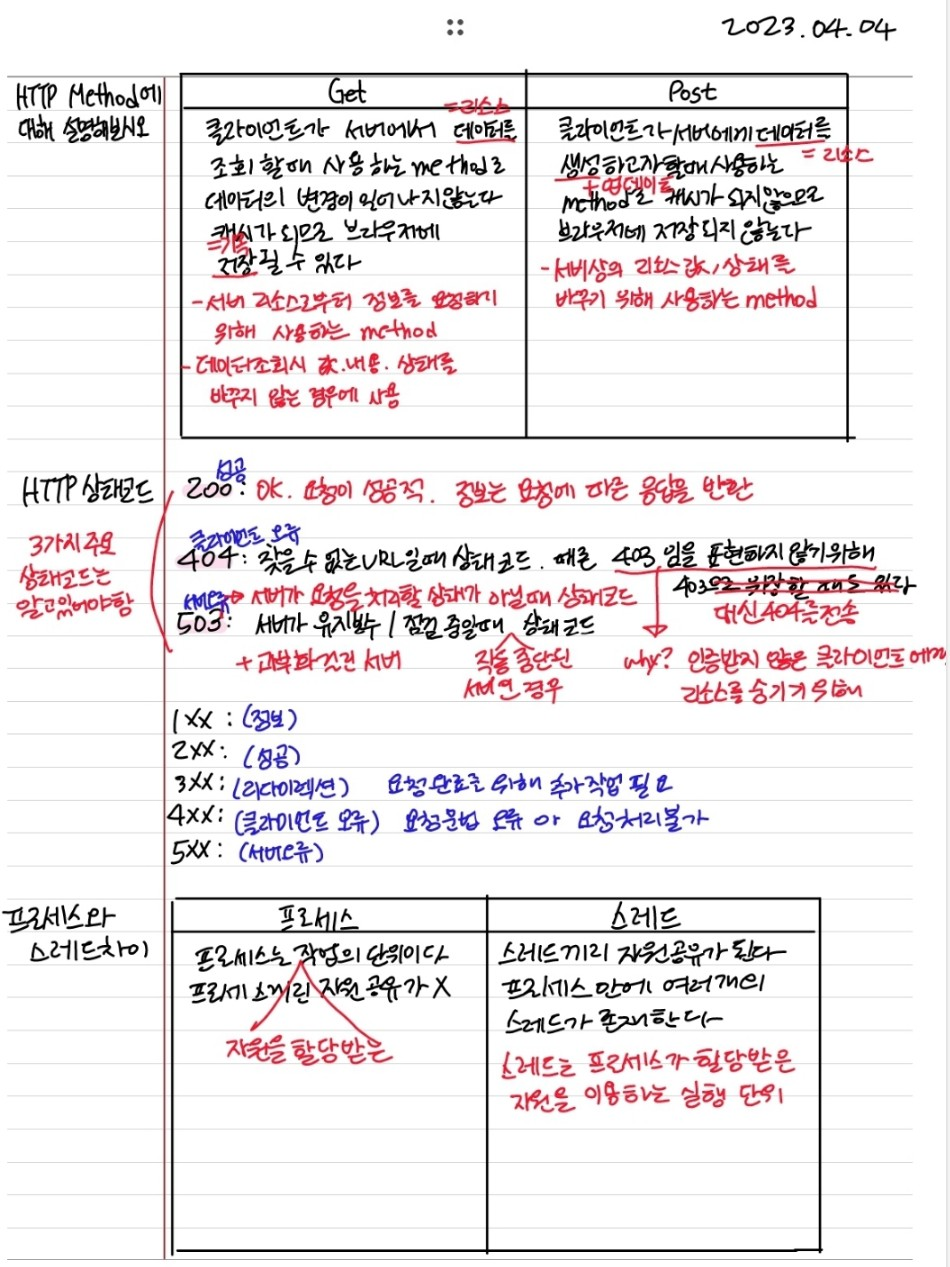 2023.04.04
HTTP Method에
대해 설명해보시오
Get
=리소스
클라이언트가 서버에서 데이터를
조회 할때 사용하는 method로
데이터의 변경이 일어나지않는다
캐시가 되므로 브라우저에
=기록
저장될 수 있다
-서버 리소스로부터 정보를 요청하기
위해 사용하는 method
-데이터조회시 값.내용.상태를
바꾸지 않는 경우에 사용
Post
클라이언트가 서버에게 데이터를
=리소스
생성하고자할때 사용하는
+업데이트
method로 캐시가 되지않으므로
브라우저에 저장되지 않는다
-서버상의 리소스값/상태를
바꾸기 위해 사용하는 method
HTTP상태코드
3가지주요
상태코드는
알고있어야함
성공
200: OK. 요청이 성공적. 정보는 요청에 따른 응답을 반환
클라이언트 오류
404: 찾을수 없는URL일때 상태코드. 때론 403임을 표현하지 않기위해
403으로 위장할 때도 있다
대신404를전송
서버오류 서버가 요청을 처리할 상태가 아닐때 상태코드
503: 서버가 유지보수 / 점검 중일때 상태코드
+과부화걸린 서버
작동 중단된
서버인 경우
why? 인증받지 않은 클라이언트에게
리소스를 숨기기 위해
1XX: (정보)
2XX: (성공)
3XX: (리다이렉션) 요청완료를 위해 추가작업 필요
4XX: (클라이언트 오류) 요청문법 오류 or 요청처리불가
5XX: (서버오류)
프로세스와
스레드차이
프로세스
프로세스는 작업의 단위이다
프로세스끼린 자원공유가 X
자원을 할당받는
스레드
스레드끼리 자원공유가 된다
프로세스 안에 여러개의
스레드가 존재한다
스레드는 프로세스가 할당받은
자원을 이용하는 실행 단위